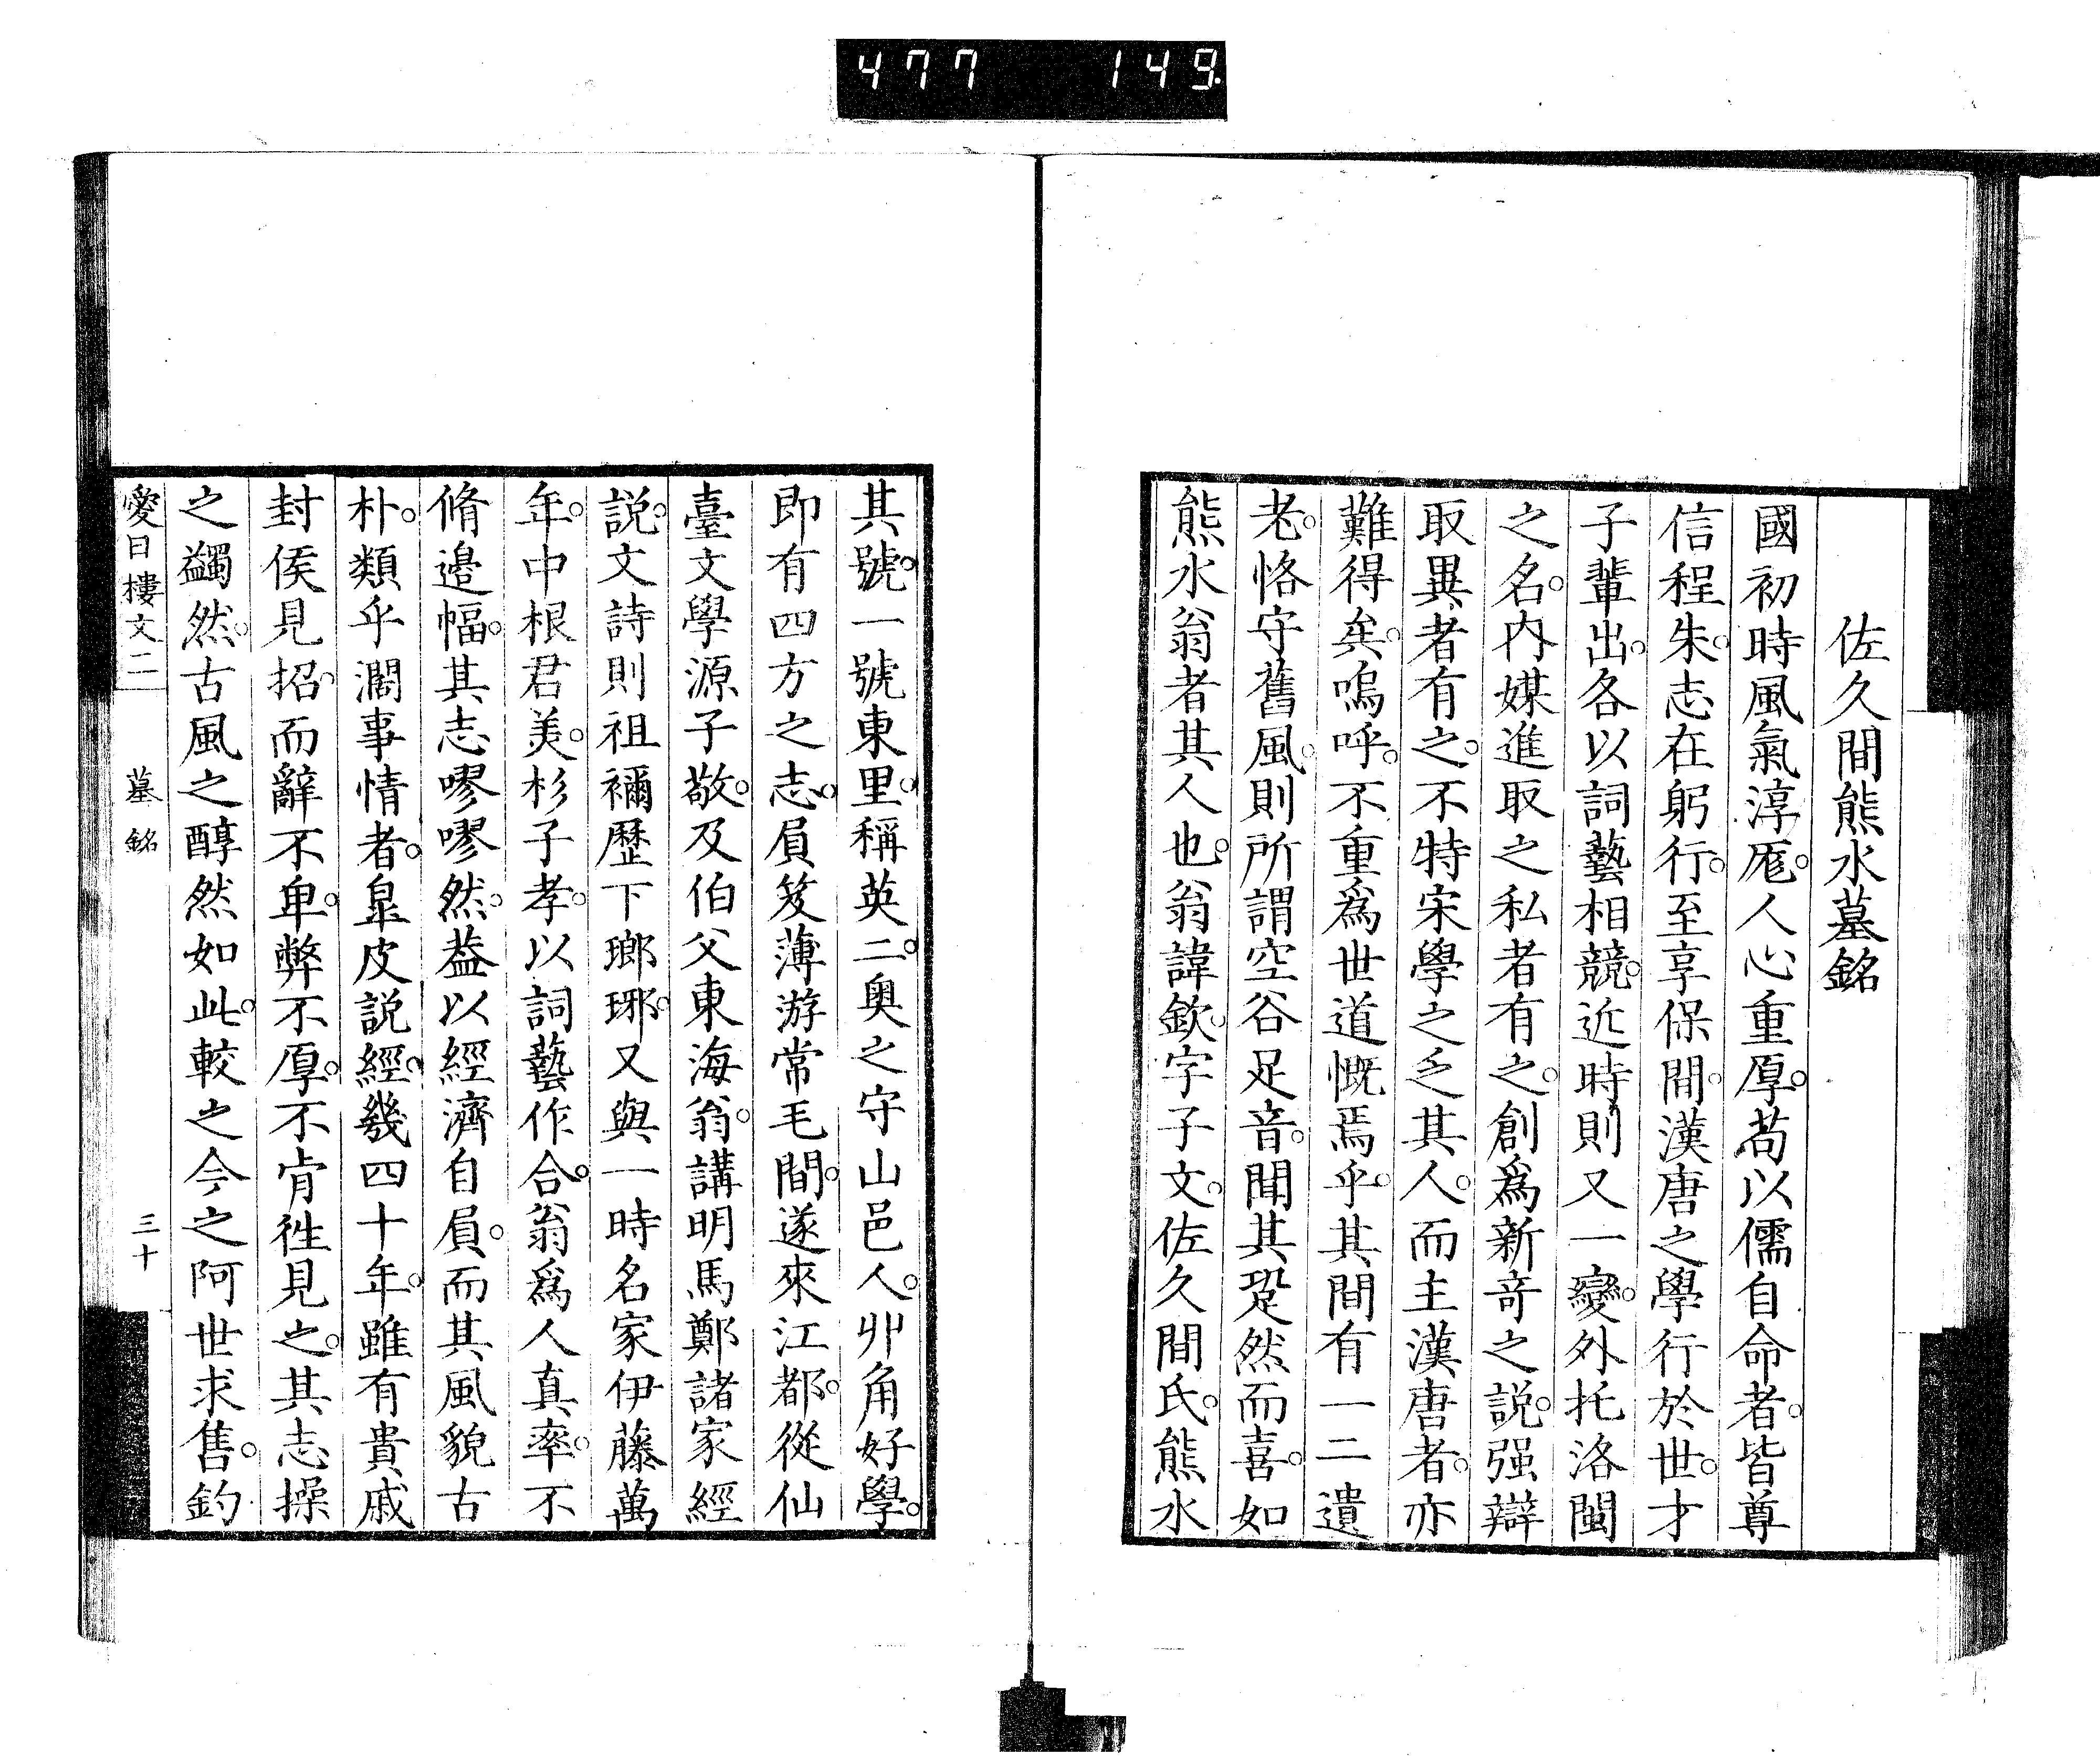 477 149
佐久間熊水墓銘
國初時風氣淳厖。人心重厚。苟以儒自命者。皆尊
信程朱。志在躬行。至享保間。漢唐之學行於世。才
子輩出。各以詞藝相競。近時則又一變。外托洛閩
之名。内媒進取之私者有之。創爲新奇之説。强辯
取異者有之。不特宋學之乏其人。而主漢唐者。亦
難得矣。嗚呼。不重爲世道慨焉乎。其間有一二遺
老。恪守舊風。則所謂空谷足音。聞其跫然而喜。如
熊水翁者其人也。翁諱欽。字子文。佐久間氏。熊水
其號。一號東里。稱英二。奥之守山邑人。丱角好學。
即有四方之志。負笈薄游常毛間。遂來江都。從仙
臺文學源子敬。及伯父東海翁。講明馬鄭諸家經
説。文詩則祖禰歷下瑯琊。又與一時名家伊藤萬
年。中根君美。杉子孝。以詞藝作合。翁爲人真率。不
脩邉幅。其志嘐嘐然。葢以經濟自負。而其風貌古
朴。類乎濶事情者。臯皮説經。幾四十年。雖有貴戚
封侯見招。而辭不卑。弊不厚。不肯徃見之。其志操
之蠲然。古風之醇然如此。較之今之阿世求售。釣
愛日樓文二 墓銘 三十